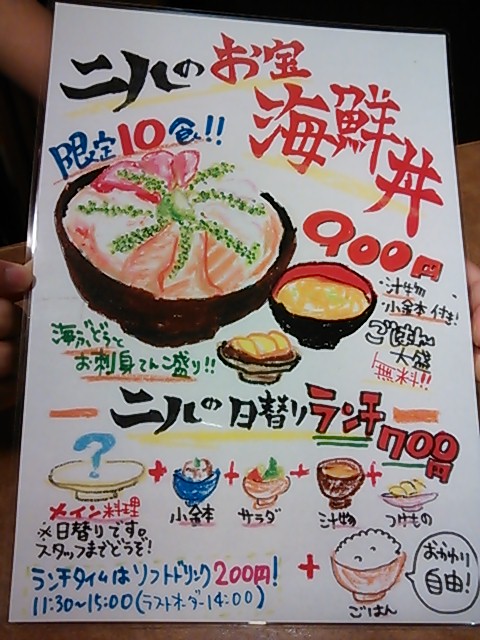 二八のお宝
海鮮丼
限定10食!!
900円
・汁物
・小鉢付き!
ごはん大盛
無料!!
海ぶどうと
お刺身てんこ盛り!!
二八の日替りランチ700円
?
+ + + +
メイン料理
小鉢 サラダ 汁物 つけもの
※日替りです。
スタッフまでどうぞ!
+
ごはん
おかわり
自由!
ランチタイムはソフトドリンク200円!
11:30~15:00(ラストオーダー14:00)